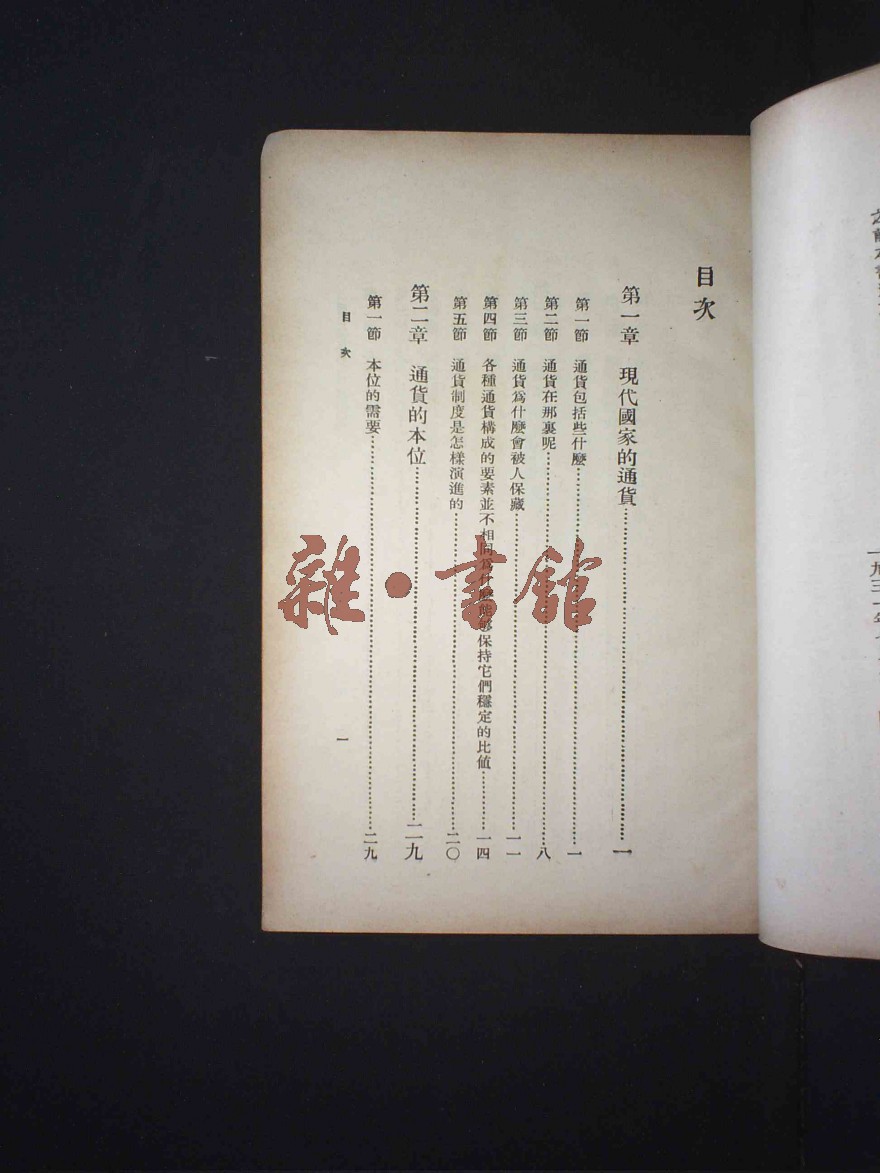 目次
第一章 現代國家的通貨……一
第一節 通貨包括些什麼……一
第二節 通貨在那裏呢……八
第三節 通貨爲什麼會被人保藏……一一
第四節 各種通貨構成的要素並不相同爲什麼能够保持它們穩定的比值……一四
第五節 通貨制度是怎樣演進的……二〇
第二章 通貨的本位……二九
第一節 本位的需要……二九
目次
一
雜·書館